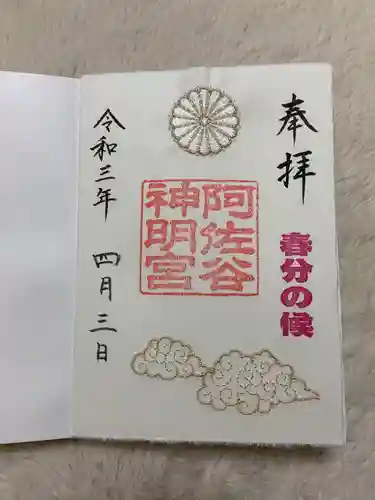 奉拝
春分の候
阿佐谷
神明宮
令和三年 四月三日